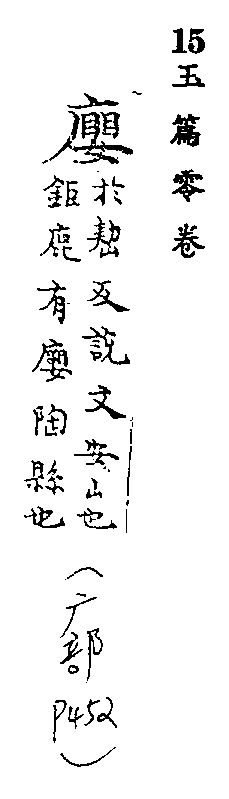 15玉篇零卷
廮
於反説文安山也
鉅鹿有廮陶縣也
(广部 P452)